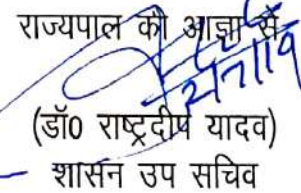 राज्यपाल की आज्ञा से
(डॉ0 राष्ट्रदीप यादव)
शासन उप सचिव